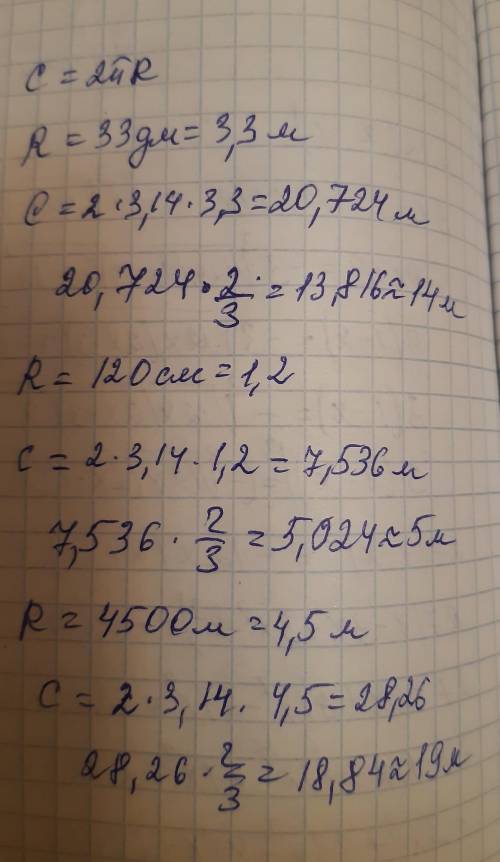 C = 2πR
R = 33дм = 3,3 м
C = 2 · 3,14 · 3,3 = 20,724 м
20,724 · 2/3 = 13,816 ≈ 14 м
R = 120 см = 1,2
C = 2 · 3,14 · 1,2 = 7,536 м
7,536 · 2/3 = 5,024 ≈ 5 м
R = 4500м = 4,5 м
C = 2 · 3,14 · 4,5 = 28,26
28,26 · 2/3 = 18,84 ≈ 19 м